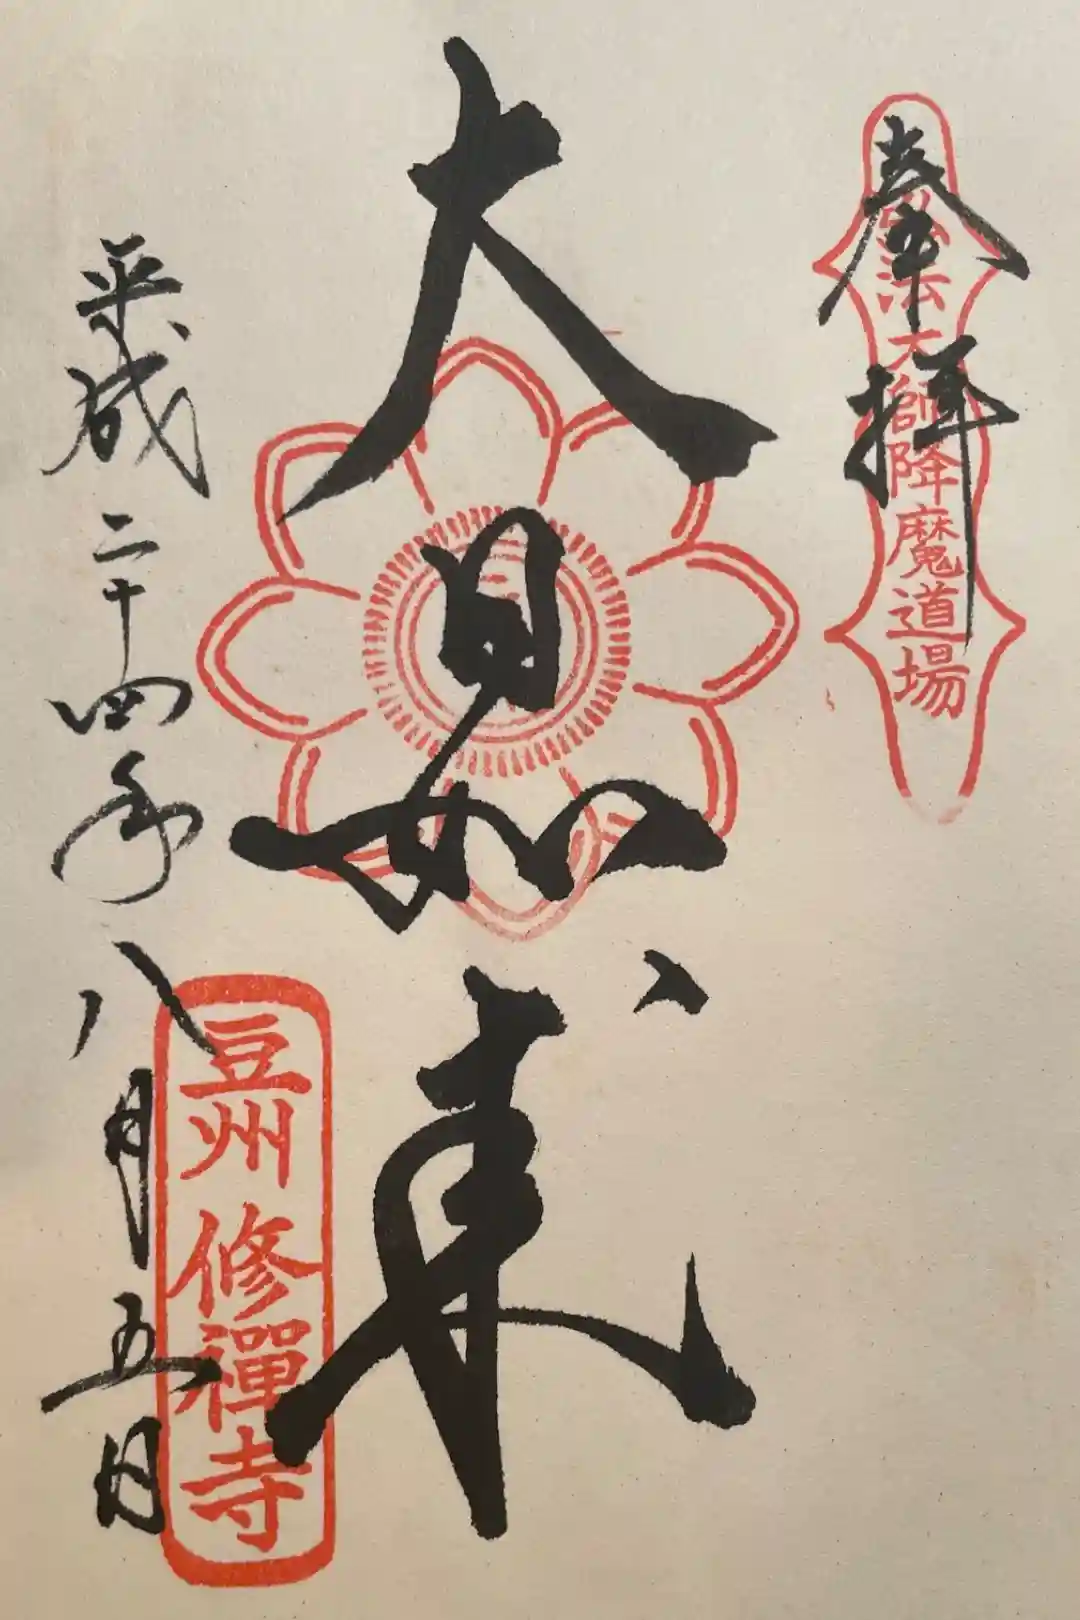 奉拝
弘法大師降魔道場
大日如来
平成二十四年八月五日
豆州修禅寺